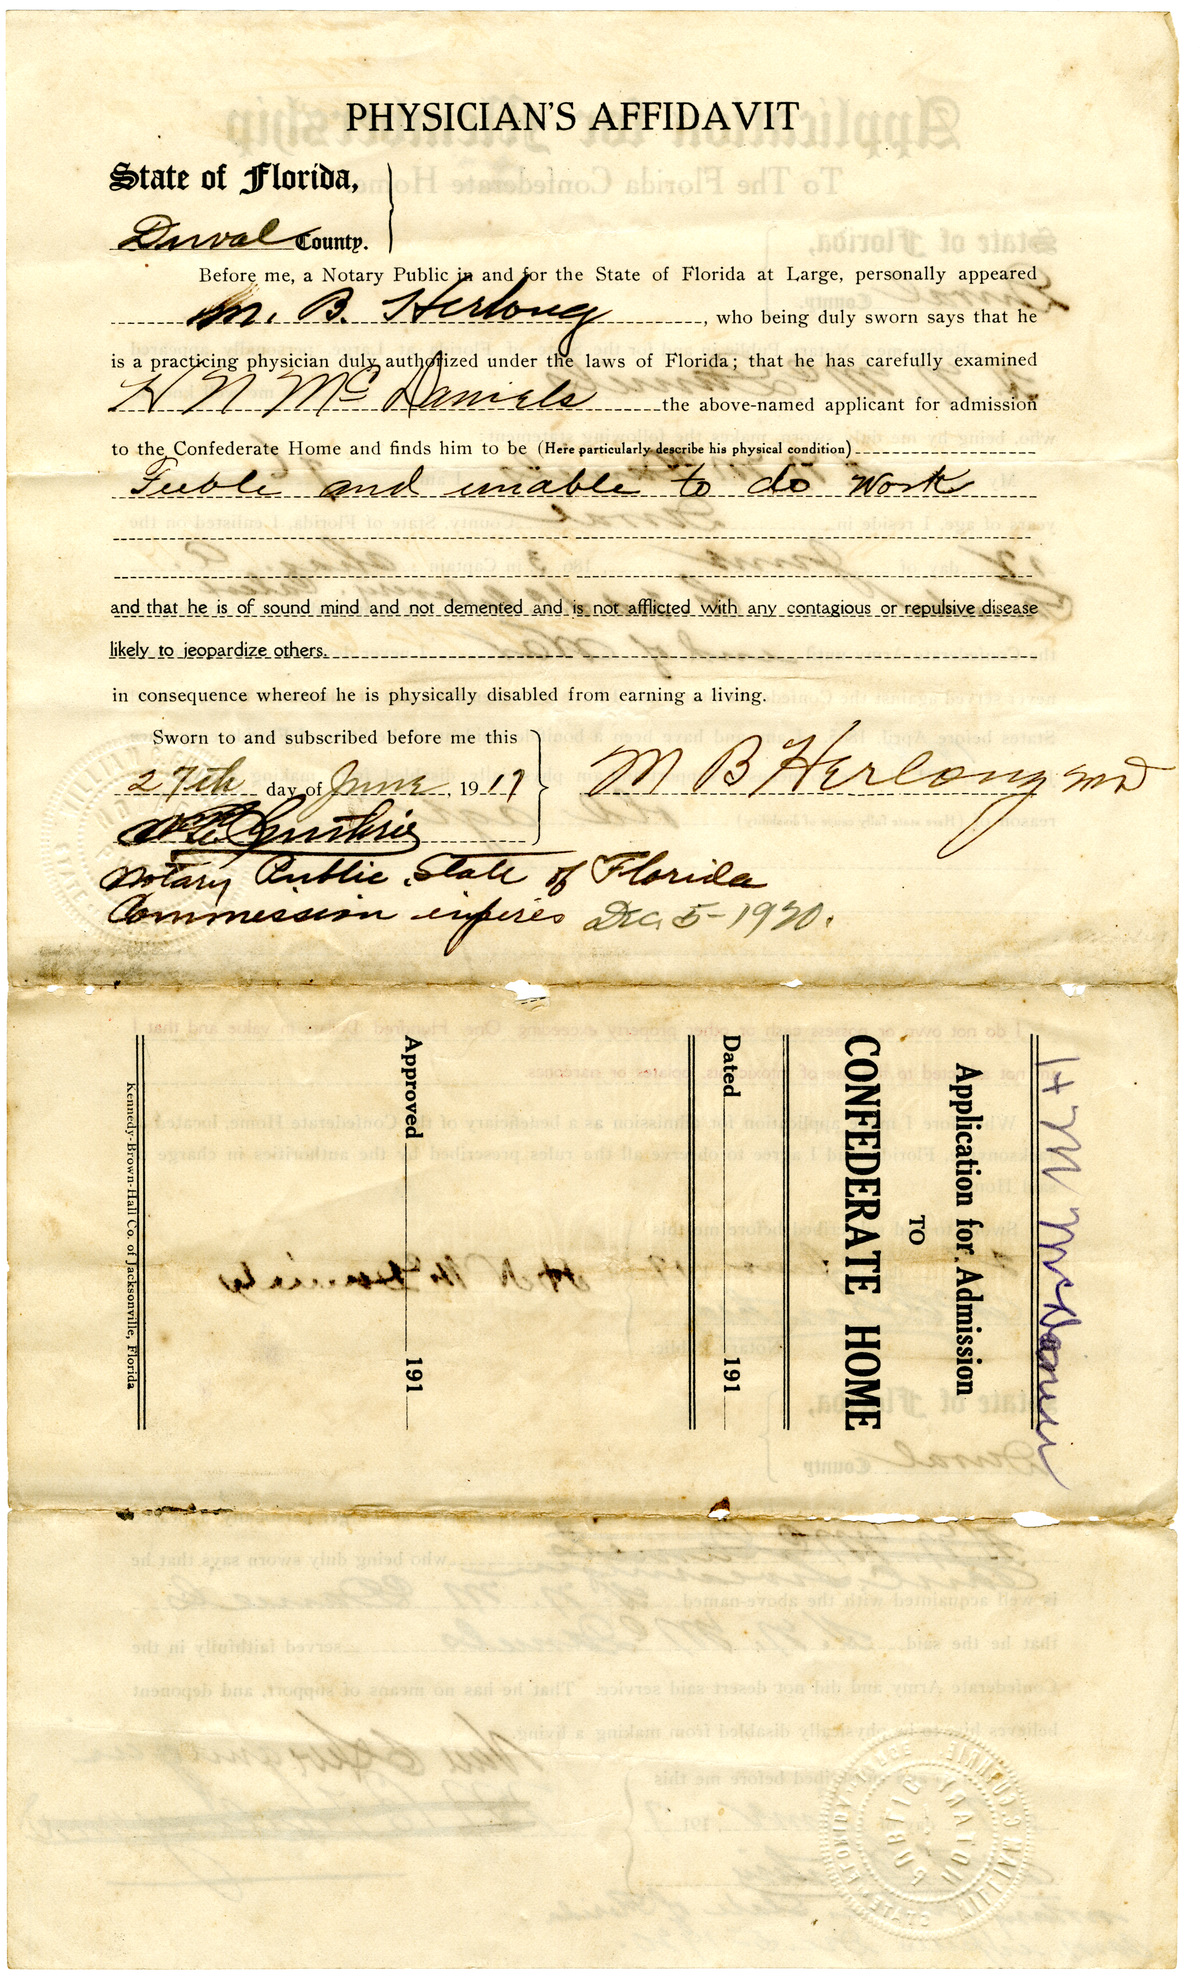 PHYSICIAN'S AFFIDAVIT
State of Florida,
Duval County.
Before me, a Notary Public in and for the State of Florida at Large, personally appeared
M. B. Herlong, who being duly sworn says that he
is a practicing physician duly authorized under the laws of Florida; that he has carefully examined
H N McDaniels the above-named applicant for admission
to the Confederate Home and finds him to be (Here particularly describe his physical condition)
Feeble and unable to do work
and that he is of sound mind and not demented and is not afflicted with any contagious or repulsive disease
likely to jeopardize others.
in consequence whereof he is physically disabled from earning a living.
Sworn to and subscribed before me this
27th day of June, 1917
M B Herlong MD
Guthrie
Notary Public, State of Florida
Commission expires Dec. 5-1920.
H N McDaniels
Application for Admission
TO
CONFEDERATE HOME
Dated 191
Approved 191
Kennedy-Brown-Hall Co. of Jacksonville, Florida